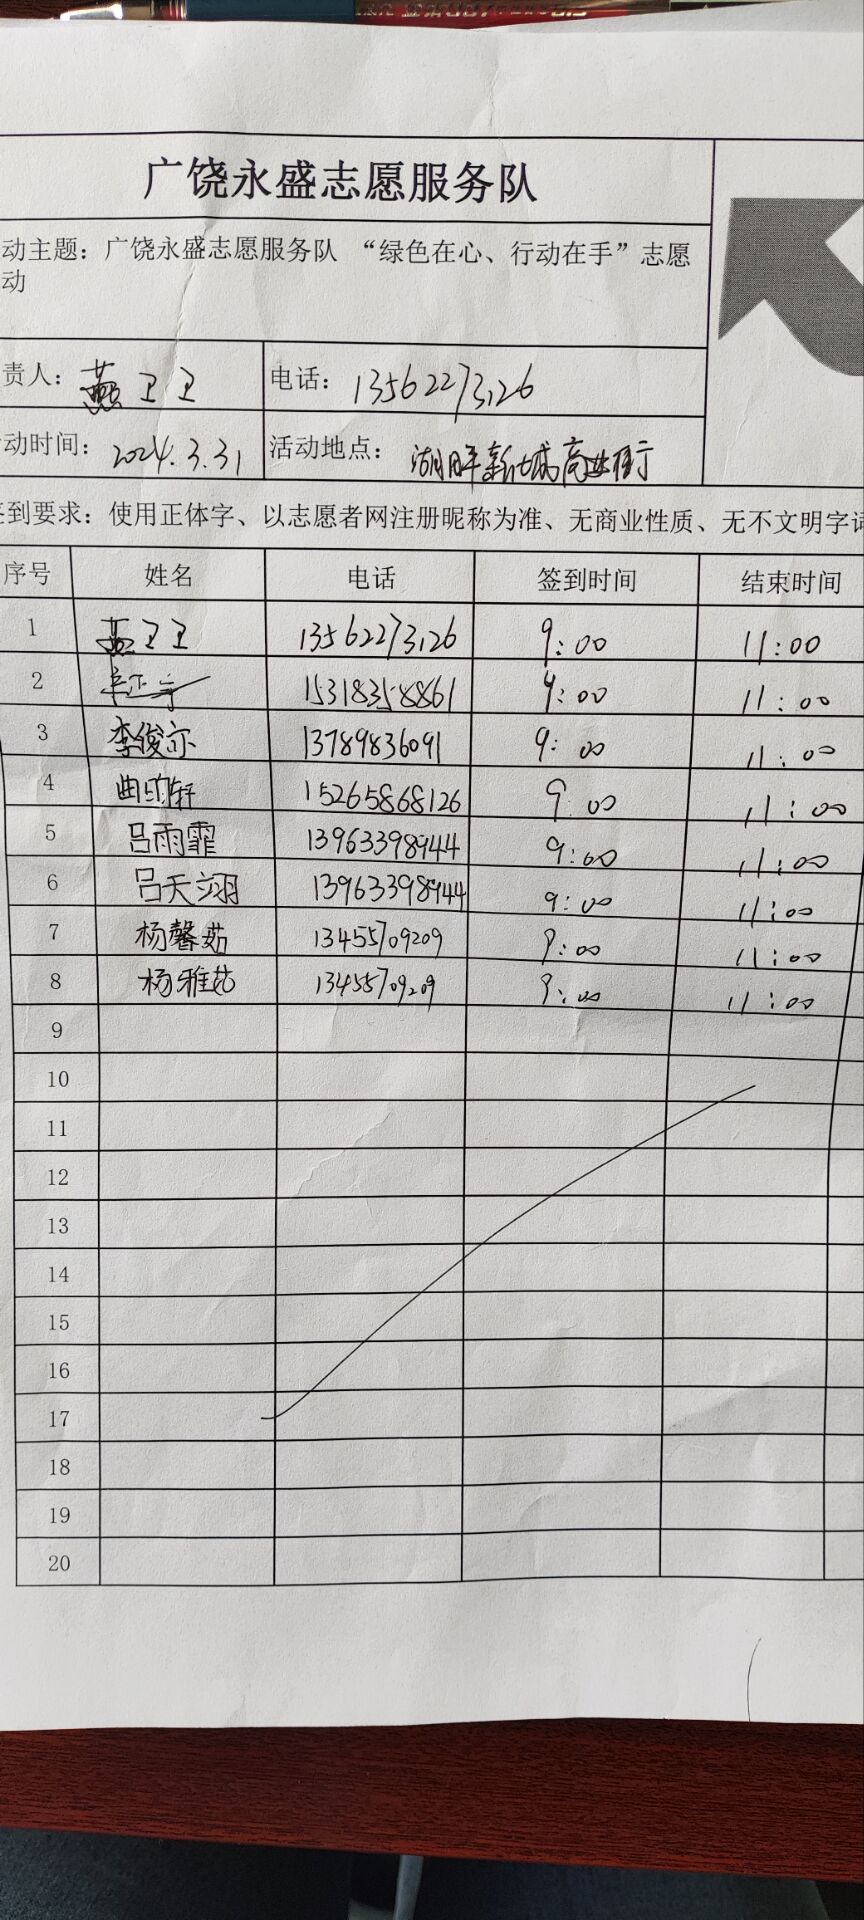 广饶永盛志愿服务队
动主题：广饶永盛志愿服务队 “绿色在心、行动在手”志愿
动
责人：燕卫卫 电话：13562273126
动时间：2024.3.31 活动地点：湖畔新城商业街
到要求：使用正体字、以志愿者网注册昵称为准、无商业性质、无不文明字词
序号 姓名 电话 签到时间 结束时间
1 燕卫卫 13562273126 9:00 11:00
2 15318358861 9:00 11:00
3 李俊亦 13789836091 9:00 11:00
4 曲昀轩 15265868126 9:00 11:00
5 吕雨霏 13963398944 9:00 11:00
6 吕天翊 13963398944 9:00 11:00
7 杨馨茹 13455709209 9:00 11:00
8 杨雅茹 13455709209 9:00 11:00
9
10
11
12
13
14
15
16
17
18
19
20